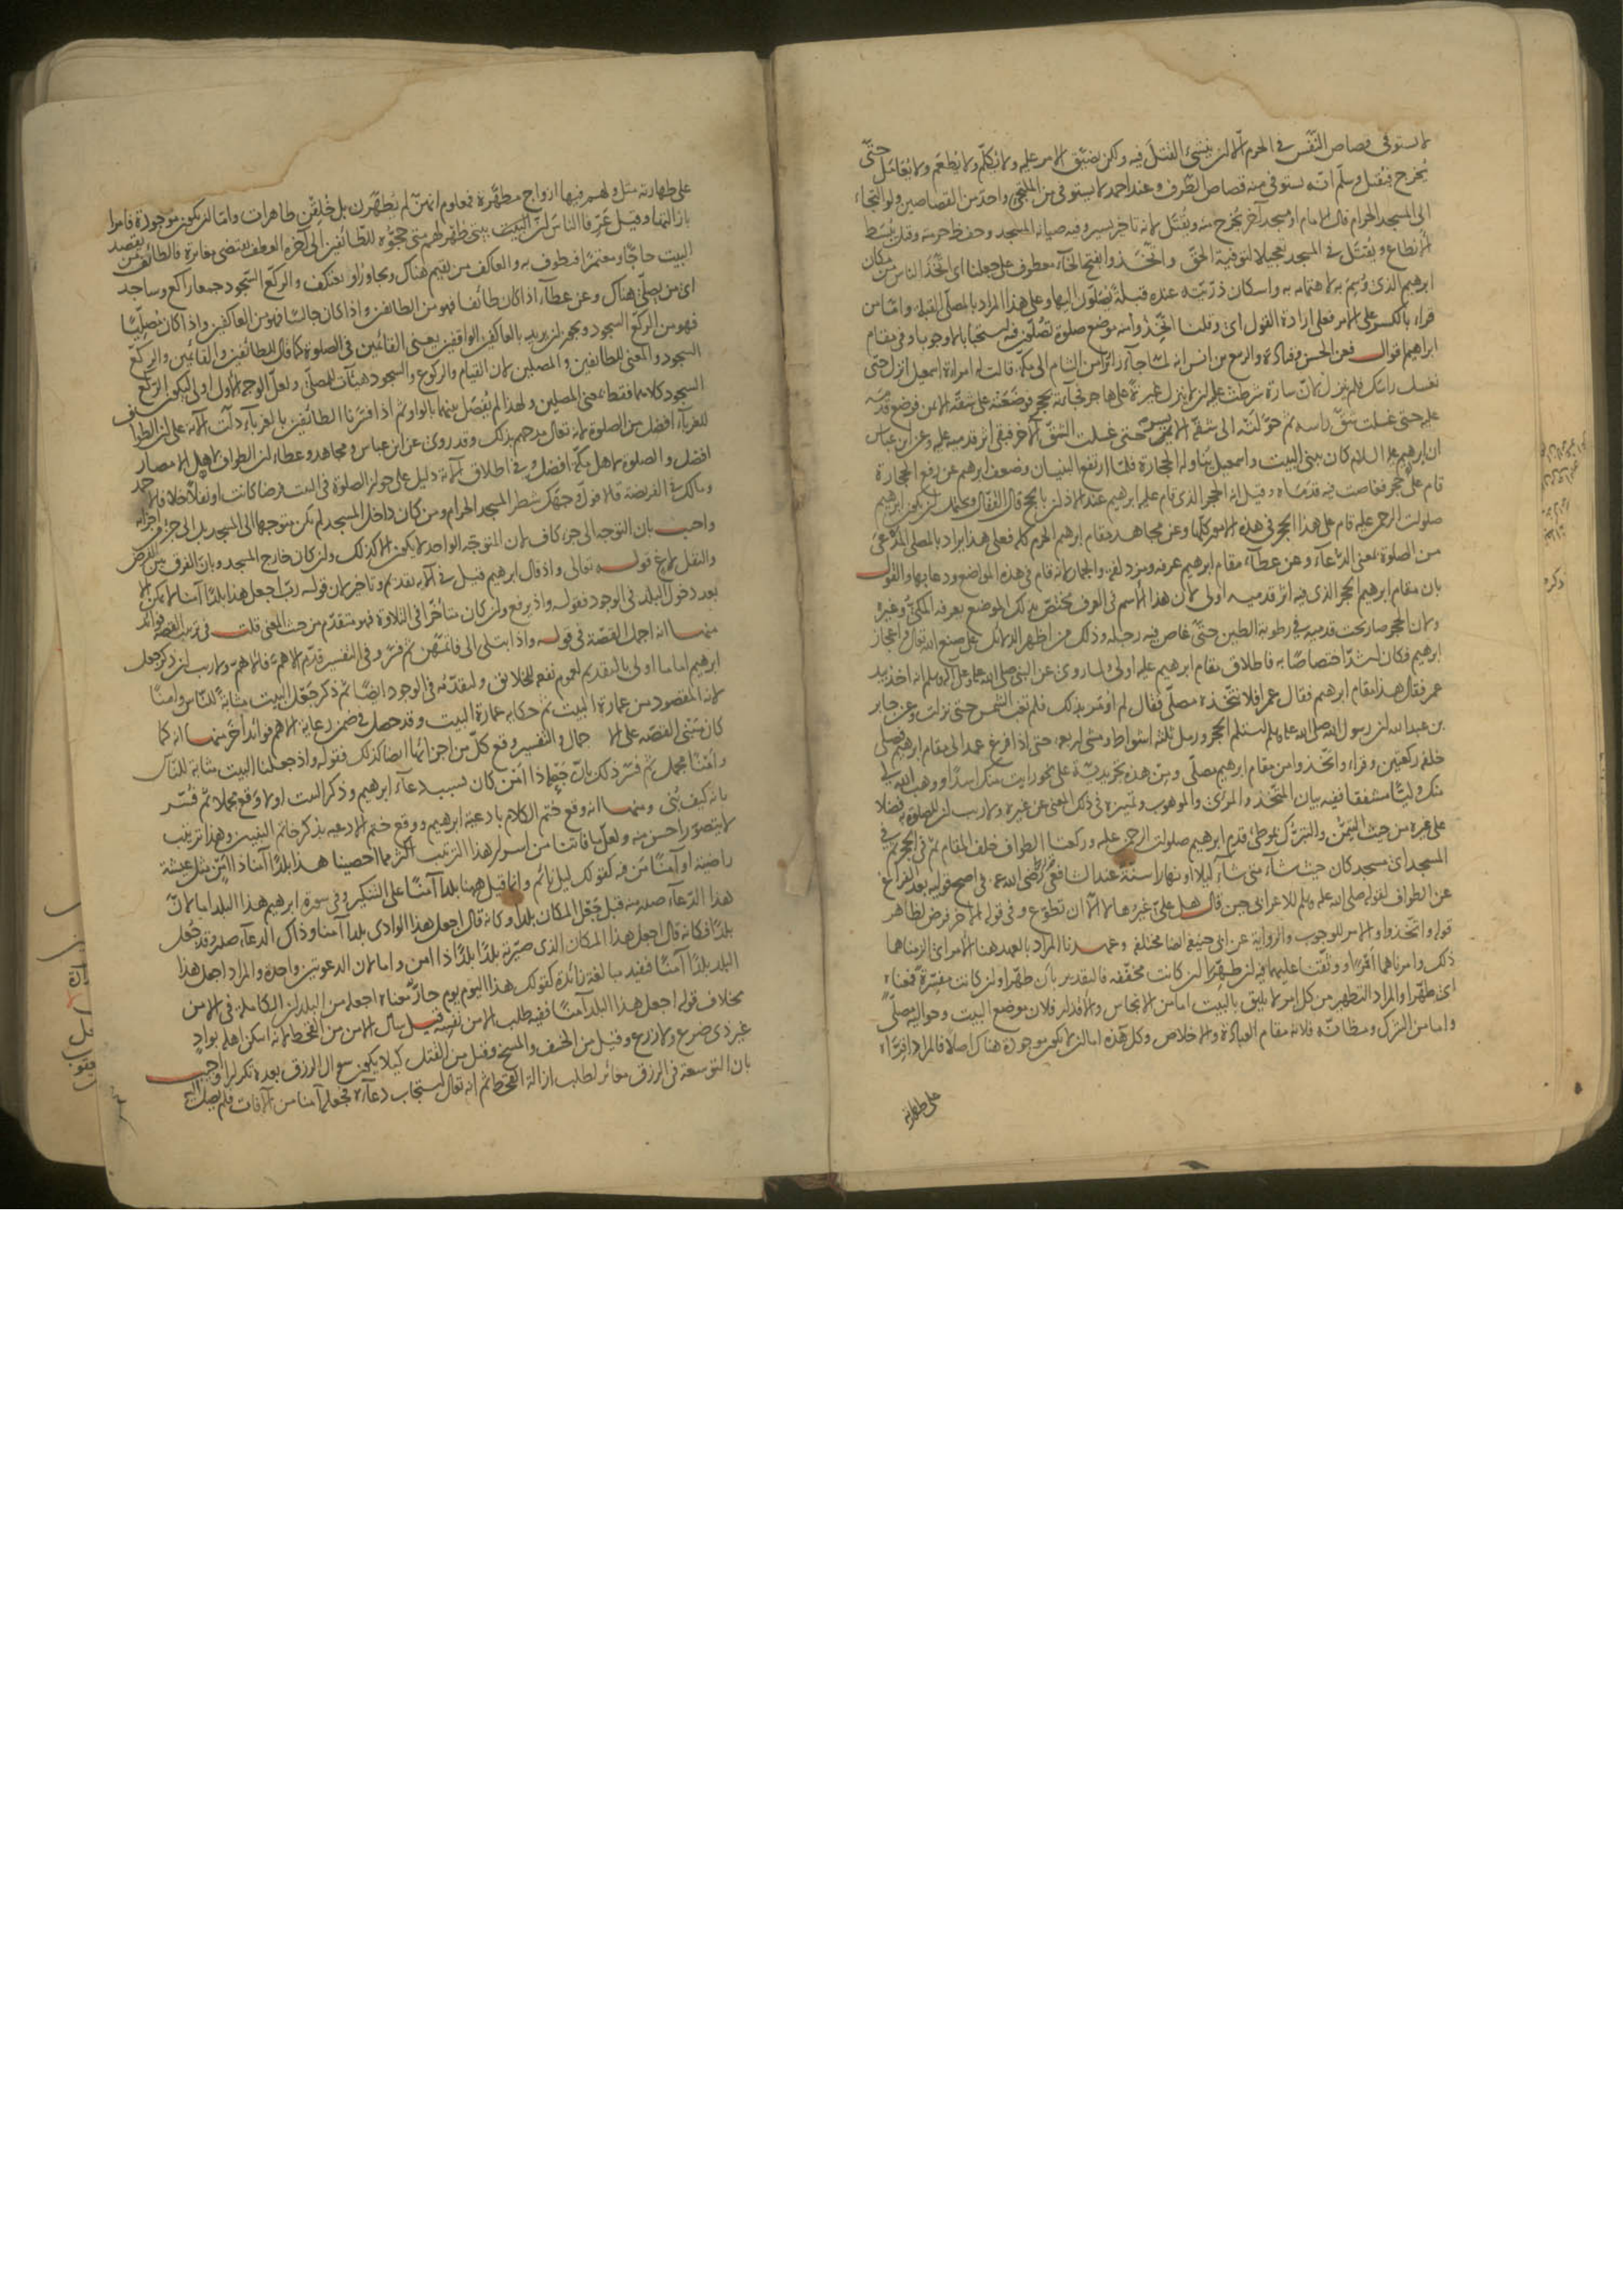 لا يستوفى قصاص النفس فى الحرم الا ان ينشئ القتل فيه ولكن يضيق الامر عليه ولا يكلم ولا يطعم ولا يعامل حتى
يخرج فيقتل وسلم انه يستوفى منه قصاص الطرف وعند احمد لا يستوفى من الملتجى واحد من القصاصين ولو التجاء
الى المسجد الحرام قال الامام او مسجد آخر يخرج منه ويقتل لانه تاخير يسير وفيه صيانة المسجد وحفظ حرمته وقيل يبسط
الانطاع ويقتل فى المسجد تعجيلا لتوفية الحق واتخذوا بفتح الخاء معطوف على جعلنا اى اتخذ الناس من مكان
ابرهيم الذى وسم به لاهتمامه به واسكان ذريته عنده قبلة يصلون اليها وعلى هذا المراد بالمصلى القبلة واما من
قراء بالكسر على الامر فعلى ارادة القول اى وقلنا اتخذوا منه موضع صلوة تصلون فيه استحبابا لا وجوبا وفى مقام
ابراهيم اقوال فعن الحسن وقتادة والربيع بن انس انه لما جاء زائرا من الشام الى مكة قالت له امراة اسمعيل انزل حتى
نغسل راسك فلم ينزل لان سارة شرطت عليه ان لا ينزل غيرة على هاجر فجاءته بحجر فوضعته على شقه الايمن فوضع قدمه
عليه حتى غسلت شق راسه ثم حولته الى شقه الايسر حتى غسلت الشق الآخر فبقى اثر قدميه عليه وعن ابن عباس
ان ابرهيم عليه السلام كان يبنى البيت واسمعيل يناوله الحجارة فلما ارتفع البنيان وضعف ابرهيم عن رفع الحجارة
قام على حجر فغاصت فيه قدماه وقيل انه الحجر الذى قام عليه ابرهيم عند الاذان بالحج قال القفال ويحتمل ان يكون ابرهيم
صلوات الرحمن عليه قام على هذا الحجر فى هذه الامور كلها وعن مجاهد مقام ابرهيم الحرم كله فعلى هذا يراد بالمصلى المدعى
من الصلوة بمعنى الدعاء وعن عطاء مقام ابرهيم عرفة ومزدلفة والجمار لانه قام فى هذه المواضع ودعا بها والقول
بان مقام ابرهيم الحجر الذى فيه اثر قدميه اولى لان هذا الاسم فى العرف مختص بذلك الموضع يعرفه المكى وغيره
ولان الحجر صار تحت قدميه فى رطوبة الطين حتى غاص فيه رجله وذلك من اظهر الدلائل على صنع الله تعالى واعجاز
ابرهيم فكان اشد اختصاصا به فاطلاق مقام ابرهيم عليه اولى ولما روى عن النبى صلى الله عليه وعلى آله وسلم انه اخذ بيد
عمر فقال هذا مقام ابرهيم فقال عمر افلا نتخذه مصلى فقال لم اومر بذلك فلم تغب الشمس حتى نزلت وعن جابر
بن عبد الله ان رسول الله صلى الله عليه وسلم استلم الحجر ورمل ثلثة اشواط ومشى اربعة حتى اذا فرغ عمد الى مقام ابرهيم فصلى
خلفه ركعتين وقراء واتخذوا من مقام ابرهيم مصلى ومن هذه تجريدية على نحو رايت منك اسدا ووهب الله لى
منك وليا مشفقا ففيه بيان المتخذ والمرئى والموهوب وتميزه فى ذلك المعنى عن غيره ولا ريب ان للصلوة به فضلا
على غيره من حيث التيمن والتبرك بموطئ قدم ابرهيم صلوات الرحمن عليه وركعتا الطواف خلف المقام ثم فى الحجر ثم فى
المسجد اى مسجد كان حيث شاء متى شاء ليلا او نهارا سنة عند الشافعى رضى الله عنه فى اصح قوليه بعد الفراغ
عن الطواف لقوله صلى الله عليه وسلم للاعرابى حين قال هل على غيرها لا الا ان تطوع وفى قوله الآخر فرض لظاهر
قوله واتخذوا والامر للوجوب والرواية عن ابى حنيفة ايضا مختلفة وعهدنا المراد بالعهد هنا الامر اى الزمناهما
ذلك وامرناهما امرا ووثقنا عليهما فيه ان طهرا ان كانت مخففة فالتقدير بان طهرا وان كانت مفسرة فمعناه
اى طهرا والمراد التطهير من كل امر لا يليق بالبيت اما من الانجاس والاقذار فلان موضع البيت وحواليه مصلى
واما من الشرك ومظانه فلانه مقام العبادة والاخلاص وكل هذه اما ان لا يكون موجودة هناك اصلا فالمراد اقراه
على طهارته
على طهارته مثل ولهم فيها ازواج مطهرة فمعلوم انهن لم يطهرن بل خلقن طاهرات واما ان يكون موجودة فامرا
بازالتها وقيل عرفا الناس ان البيت بيتى طهر لهم متى حجوه للطائفين الى آخره العطف يقتضى مغايرة فالطائف من يقصد
البيت حاجا ومعتمرا فيطوف به والعاكف من يقيم هناك ويجاور او يعتكف والركع السجود جمعا راكع وساجد
اى من يصلى هناك وعن عطاء اذا كان طائفا فهو من الطائفين واذا كان جالسا فهو من العاكفين واذا كان مصليا
فهو من الركع السجود ويجوز ان يريد بالعاكفين الواقفين يعنى القائمين فى الصلوة كما قال للطائفين والقائمين والركع
السجود والمعنى للطائفين والمصلين لان القيام والركوع والسجود هيئات المصلى ولعل الوجه الاول اولى ليكون الركع
السجود كلاهما فقط بمعنى المصلين ولهذا لم يفصل بينهما بالواو ثم اذا فسرنا الطائفين بالغرباء دلت الآية على ان الطواف
للغرباء افضل من الصلوة لانه تعالى مدحهم بذلك وقد روى عن ابن عباس ومجاهد وعطاء ان الطواف لاهل الامصار
افضل والصلوة لاهل مكة افضل وفى اطلاق الآية دليل على جواز الصلوة فى البيت فرضا كانت او نفلا خلافا لاحمد
ومالك فى الفريضة قالا فول وجهك شطر المسجد الحرام ومن كان داخل المسجد لم يكن متوجها الى المسجد بل الى جزء من اجزائه
واجيب بان التوجه الى جزء كاف لان المتوجه الواحد لا يكون الا كذلك وان كان خارج المسجد وبان الفرق بين الفرض
والنفل لاغ قوله تعالى واذ قال ابرهيم قيل فى الآية تقديم وتاخير لان قوله رب اجعل هذا بلدا آمنا لا يمكن الا
بعد دخول البلد فى الوجود فقوله واذ يرفع وان كان متاخرا فى التلاوة فهو متقدم من حيث المعنى قلت فى ترتيب القصة فوائد
منها انه اجمل القصة فى قوله واذ ابتلى الى فاتمهن ثم فسر وفى التفسير قدم الاهم فالاهم ولا ريب ان ذكر جعل
ابرهيم اماما اولى بالتقديم لعموم نفعه للخلائق ولتقدمه فى الوجود ايضا ثم ذكر جعل البيت مثابة للناس وامنا
لانه المقصود من عمارة البيت ثم حكاية عمارة البيت وقد حصل فى ضمن رعاية الاهم فوائد اخر منها انه كما
كان مبنى القصة على الاجمال والتفسير وقع كل من اجزائها ايضا كذلك فقوله واذ جعلنا البيت مثابة للناس
وامنا مجمل ثم فسر ذلك بان جعله ذا امن كان بسبب دعاء ابرهيم وذكر البيت اولا وقع مجملا ثم فسر
بانه كيف بنى ومنها انه وقع ختم الكلام بادعية ابرهيم ووقع ختم الادعية بذكر خاتم النبيين وهذا ترتيب
لا يتصور احسن منه ولعل ما فاتنا من اسرار هذا الترتيب اكثر مما احصينا هذا بلدا آمنا ذا امن مثل عيشة
راضية او آمنا من فيه كقولك ليل نائم وانما قيل ههنا بلدا آمنا على التنكير وفى سورة ابرهيم هذا البلد اما لان
هذا الدعاء صدر منه قبل جعل المكان بلدا وكانه قال اجعل هذا الوادى بلدا آمنا وذاك الدعاء صدر وقد جعل
بلدا فكانه قال اجعل هذا المكان الذى صيرته بلدا بلدا ذا امن واما لان الدعوتين واحدة والمراد اجعل هذا
البلد بلدا آمنا ففيه مبالغة زائدة كقولك هذا اليوم يوم حار معناه اجعله من البلدان الكاملة فى الامن
بخلاف قوله اجعل هذا البلد آمنا ففيه طلب الامن نفسه قيل سأل الامن من القحط لانه اسكن اهله بواد
غير ذى ضرع ولا زرع وقيل من الخسف والمسخ وقيل من القتل كيلا يكون سؤال الرزق بعده تكرارا واجيب
بان التوسعة فى الرزق مغاير لطلب ازالة القحط ثم انه تعالى استجاب دعاءه فجعله آمنا من الآفات فلم يصل اليه